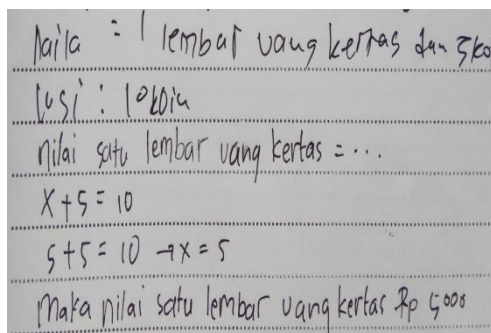 Naila = 1 lembar uang kertas dan 5 ko
Lusi : 10 koin
nilai satu lembar uang kertas = ...
x + 5 = 10
5 + 5 = 10 → x = 5
Maka nilai satu lembar uang kertas Rp 5000